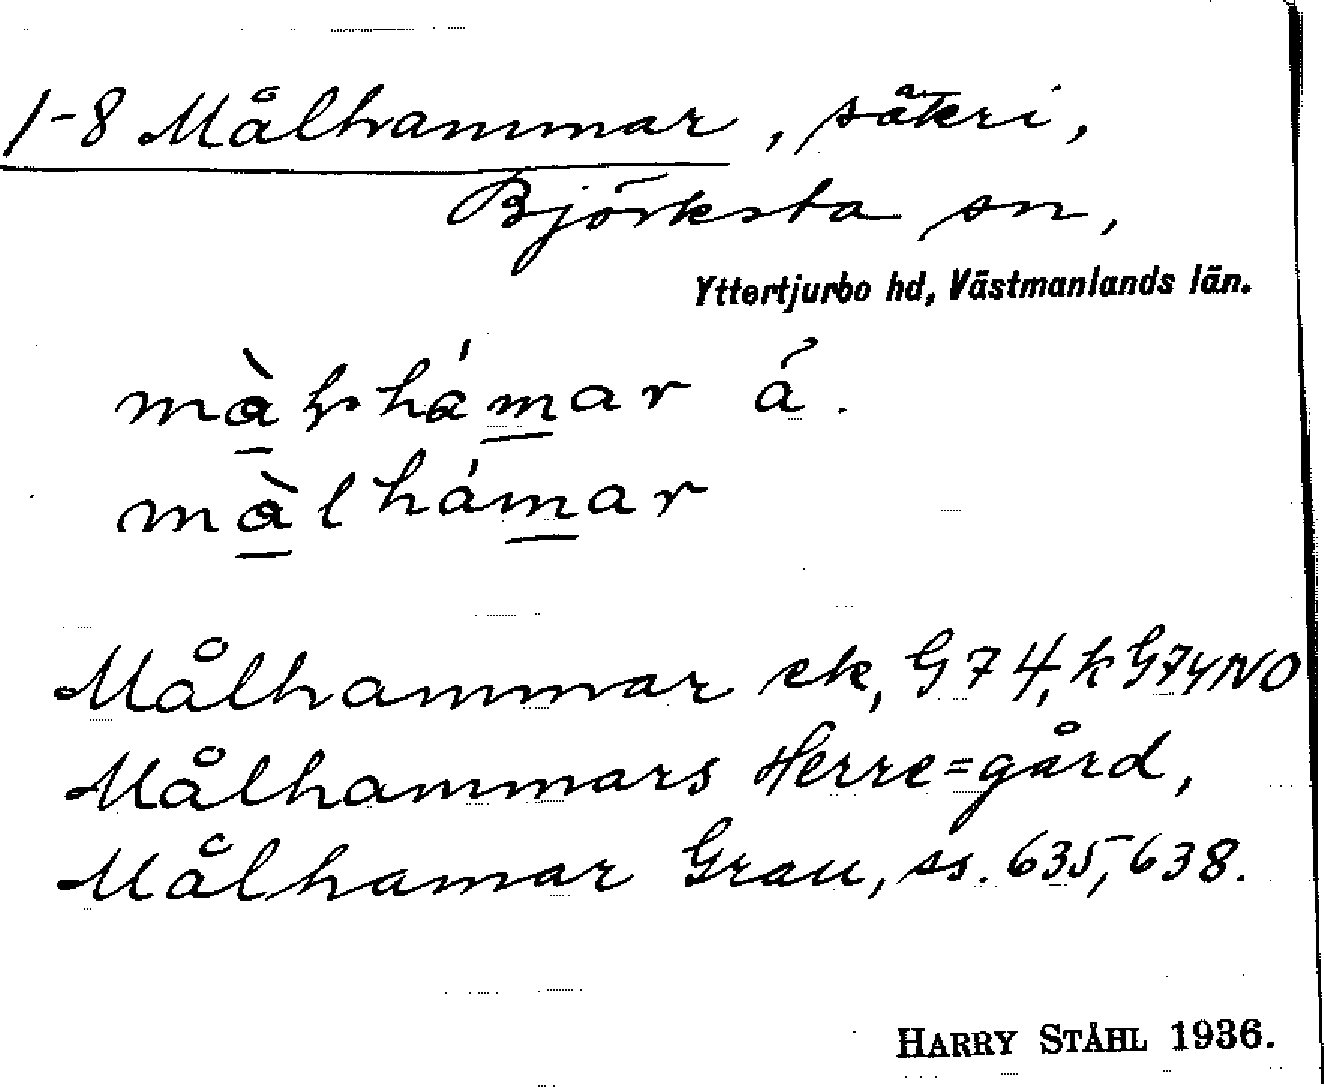 1-8 Målhammar, säteri,
Björksta sn,
Yttertjurbo hd, Västmanlands län.
hámar
màlhámar
Målhammar ek, G74, k G74NO
Målhammars Herre=gård,
Målhamar Grau, ss. 635, 638.
HARRY STÅHL 1936.